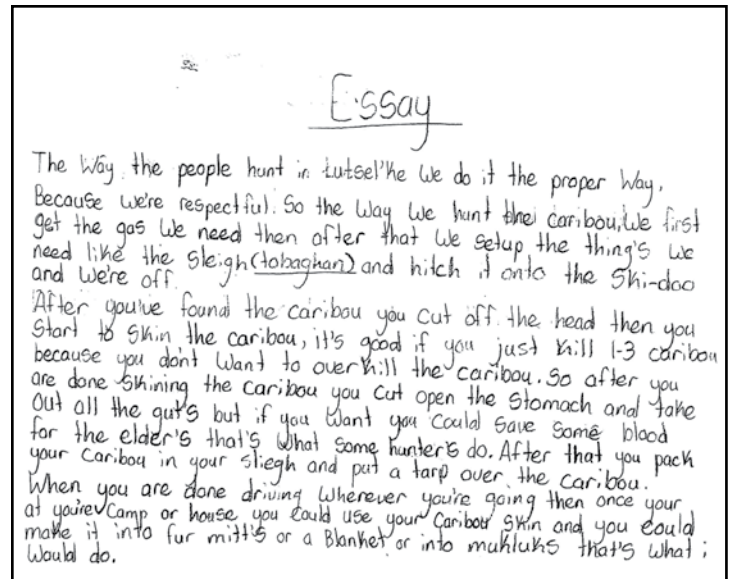 Essay
The Way the people hunt in Łutsel'ke we do it the proper Way.
Because we're respectful. So the way we hunt the caribou, we first
get the gas we need then after that we setup the thing's we
need like the sleigh (tobaghan) and hitch it onto the Ski-doo
and we're off.
After you've found the caribou you cut off the head then you
Start to skin the caribou, it's good if you just kill 1-3 caribou
because you don't want to overkill the caribou. So after you
are done skining the caribou you cut open the stomach and take
out all the gut's but if you want you could save some blood
for the elder's that's what some hunter's do. After that you pack
your caribou in your sliegh and put a tarp over the caribou.
When you are done driving wherever you're going then once your
at you're camp or house you could use your caribou skin and you could
make it into fur mitt's or a Blanket or into mukluks that's what i
Would do.